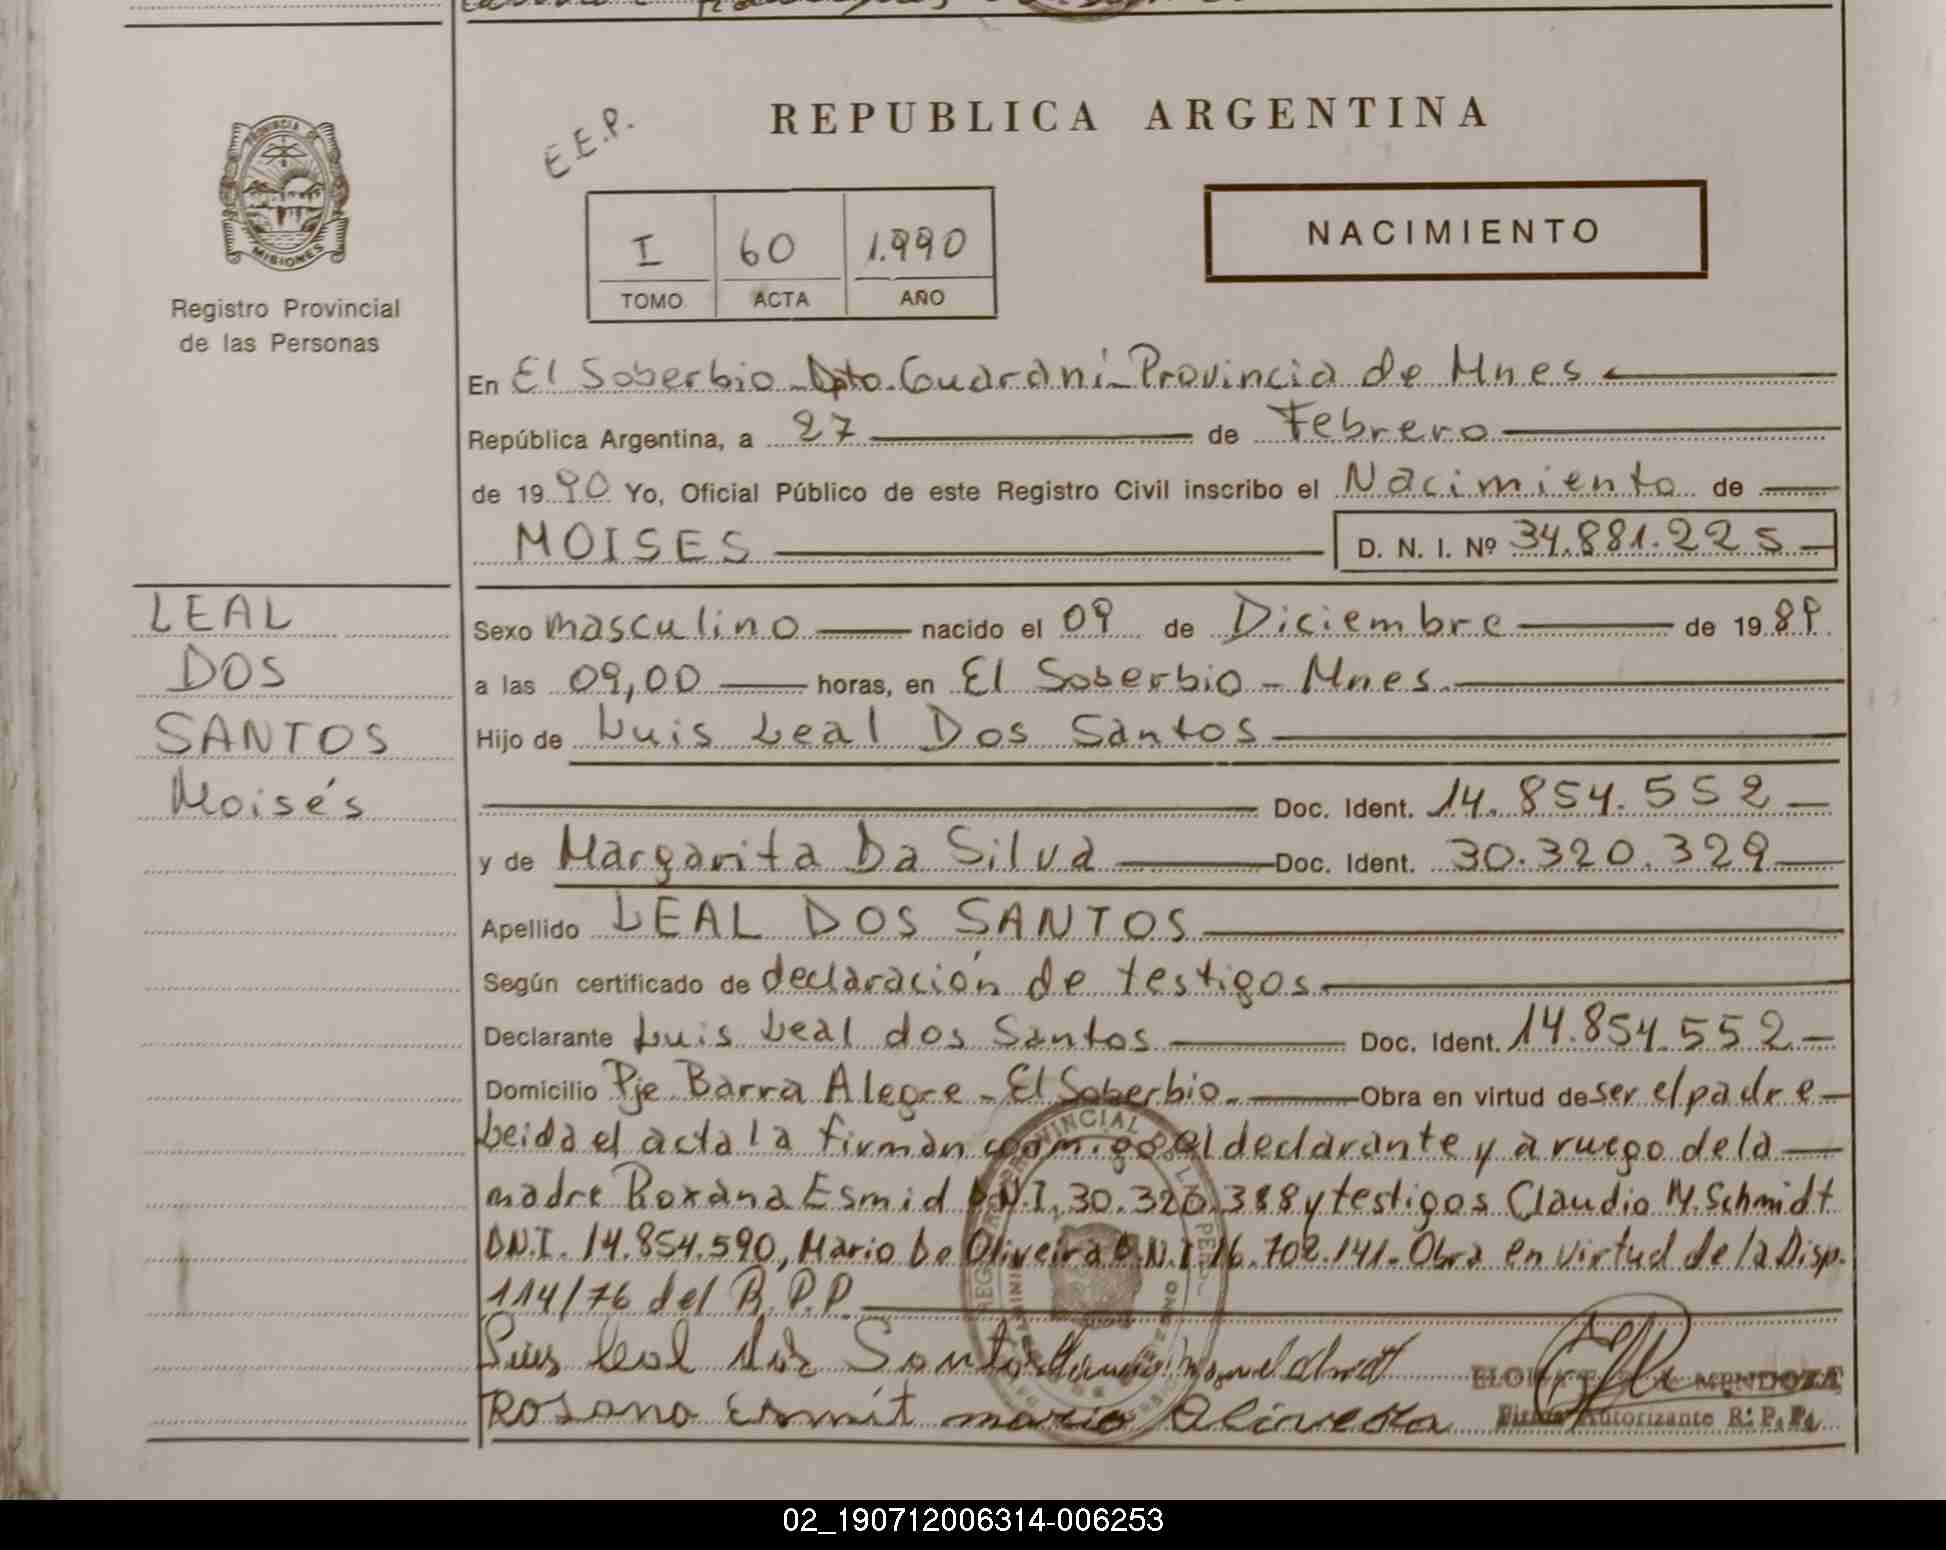 E.E.P.
REPUBLICA ARGENTINA
PROVINCIA DE MISIONES
Registro Provincial
de las Personas
I 60 1.990
TOMO ACTA AÑO
NACIMIENTO
En El Soberbio Dpto. Guaraní Provincia de Mnes
República Argentina, a 27 de Febrero
de 1990 Yo, Oficial Público de este Registro Civil inscribo el Nacimiento de
MOISES D. N. I. Nº 34.881.225
LEAL
DOS
SANTOS
Moisés
Sexo masculino nacido el 09 de Diciembre de 1989
a las 09,00 horas, en El Soberbio - Mnes.
Hijo de Luis Leal Dos Santos
Doc. Ident. 14.854.552
y de Margarita Da Silva Doc. Ident. 30.320.329
Apellido LEAL DOS SANTOS
Según certificado de declaración de testigos
Declarante Luis Leal dos Santos Doc. Ident. 14.854.552
Domicilio Pje Barra Alegre - El Soberbio. Obra en virtud de ser el padre
Leida el acta la firman conmigo el declarante y a ruego de la
madre Roxana Esmid D.N.I. 30.320.388 y testigos Claudio M. Schmidt
D.N.I. 14.854.590, Mario De Oliveira D.N.I. 16.702.141. Obra en virtud de la Disp.
114/76 del R.P.P.
Luis leal dos Santos
Rosana Esmit mario Oliveira
MENDOZA
Firma Autorizante R. P. P.
02_190712006314-006253